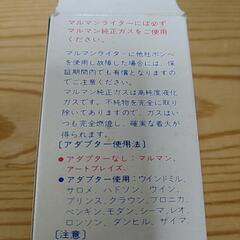 マルマンライターには必ず
マルマン純正ガスをご使用
ください。
マルマンライターに他社ボンベ
を使用し故障した場合には、保
証期間内でも有償となりますの
でご注意ください。
マルマン純正ガスは高純度液化
ガスです。不純物を完全に取り
除いてありますので、ガスはい
つも完全燃焼し、確実な着火が
得られます。
[アダプター使用法]
●アダプターなし：マルマン、
アートブレイズ。
●アダプター使用：ウインドミル、
サロメ、ハドソン、ウイン、
プリンス、クラウン、フロニカ、
ペンギン、モダン、シーマ、レオ、
ロンソン、ダンヒル、ザイマ、
[注意]